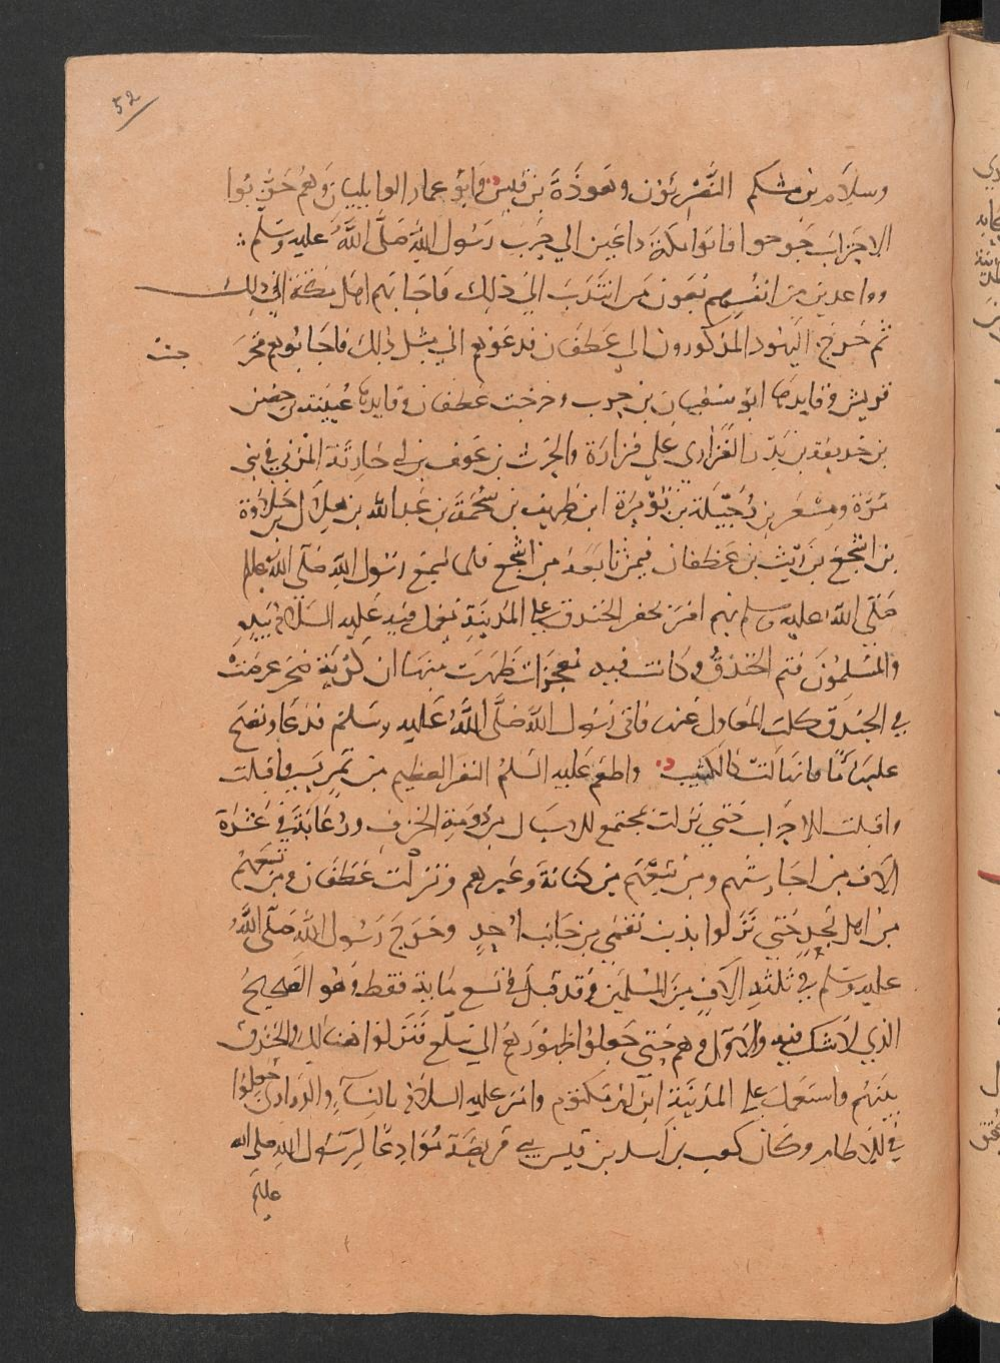 52
وسلام بن مشكم النضريون وهوذة بن قيس وابو عمار الوايليان وهم حزبوا
الاحزاب خرجوا فاتوا مكة داعين الي حرب رسول الله صلى الله عليه وسلم
وواعدين من انفسهم بعون من انتدب الي ذلك فاجابهم اهل مكة الي ذلك
ثم خرج اليهود المذكورون الي غطفان فدعوهم الي مثل ذلك فاجابوهم فخر
جت
قريش وقايدها ابو سفيان بن حرب وخرجت غطفان وقايدها عيينة بن حصن
بن حذيفة بن بدر الفزاري علي فزارة والحرث بن عوف بن ابي حارثة المزني في بني
مرة ومسعر بن رخيلة بن نويرة ابن طريف بن سحمة بن عبد الله بن هلال بن خلاوة
بن اشجع بن ريث بن غطفان فيمن تابعه من اشجع فلما سمع رسول الله صلى الله عليه
صلى الله عليه وسلم بهم امر بحفر الخندق على المدينة فعمل فيه عليه السلام بيده
والمسلمون فتم الخندق وكانت فيه معجزات ظهرت منها ان كدية صخر عرضت
في الخندق كلت المعاول عنها فاتى رسول الله صلى الله عليه وسلم فدعا ونضح
عليها ما فانهالت كالكثيب واطعم عليه السلم النفر العظيم من تمر يسير واقبلت
واقبلت الاحزاب حتي نزلت بمجتمع الاسيال من رومة بين الجرف وزغابة في عشرة
الاف من احابيشهم ومن تبعهم من كنانة وغيرهم ونزلت غطفان ومن تبعهم
من اهل نجد حتي نزلوا بذنب نقمي من جانب احد وخرج رسول الله صلى الله
عليه وسلم في ثلثة الاف من المسلمين وقد قيل في تسع ماية فقط وهو الصحيح
الذي لا شك فيه والاول وهم حتي جعلوا ظهورهم الي سلع فنزلوا هنالك والخندق
بينهم واستعمل على المدينة ابن ام مكتوم وامر عليه السلام بالنساء والذراري فجعلوا
في الاطام وكان كعب بن اسد بن قيس قريظة موادعا لرسول الله صلى الله
عليه